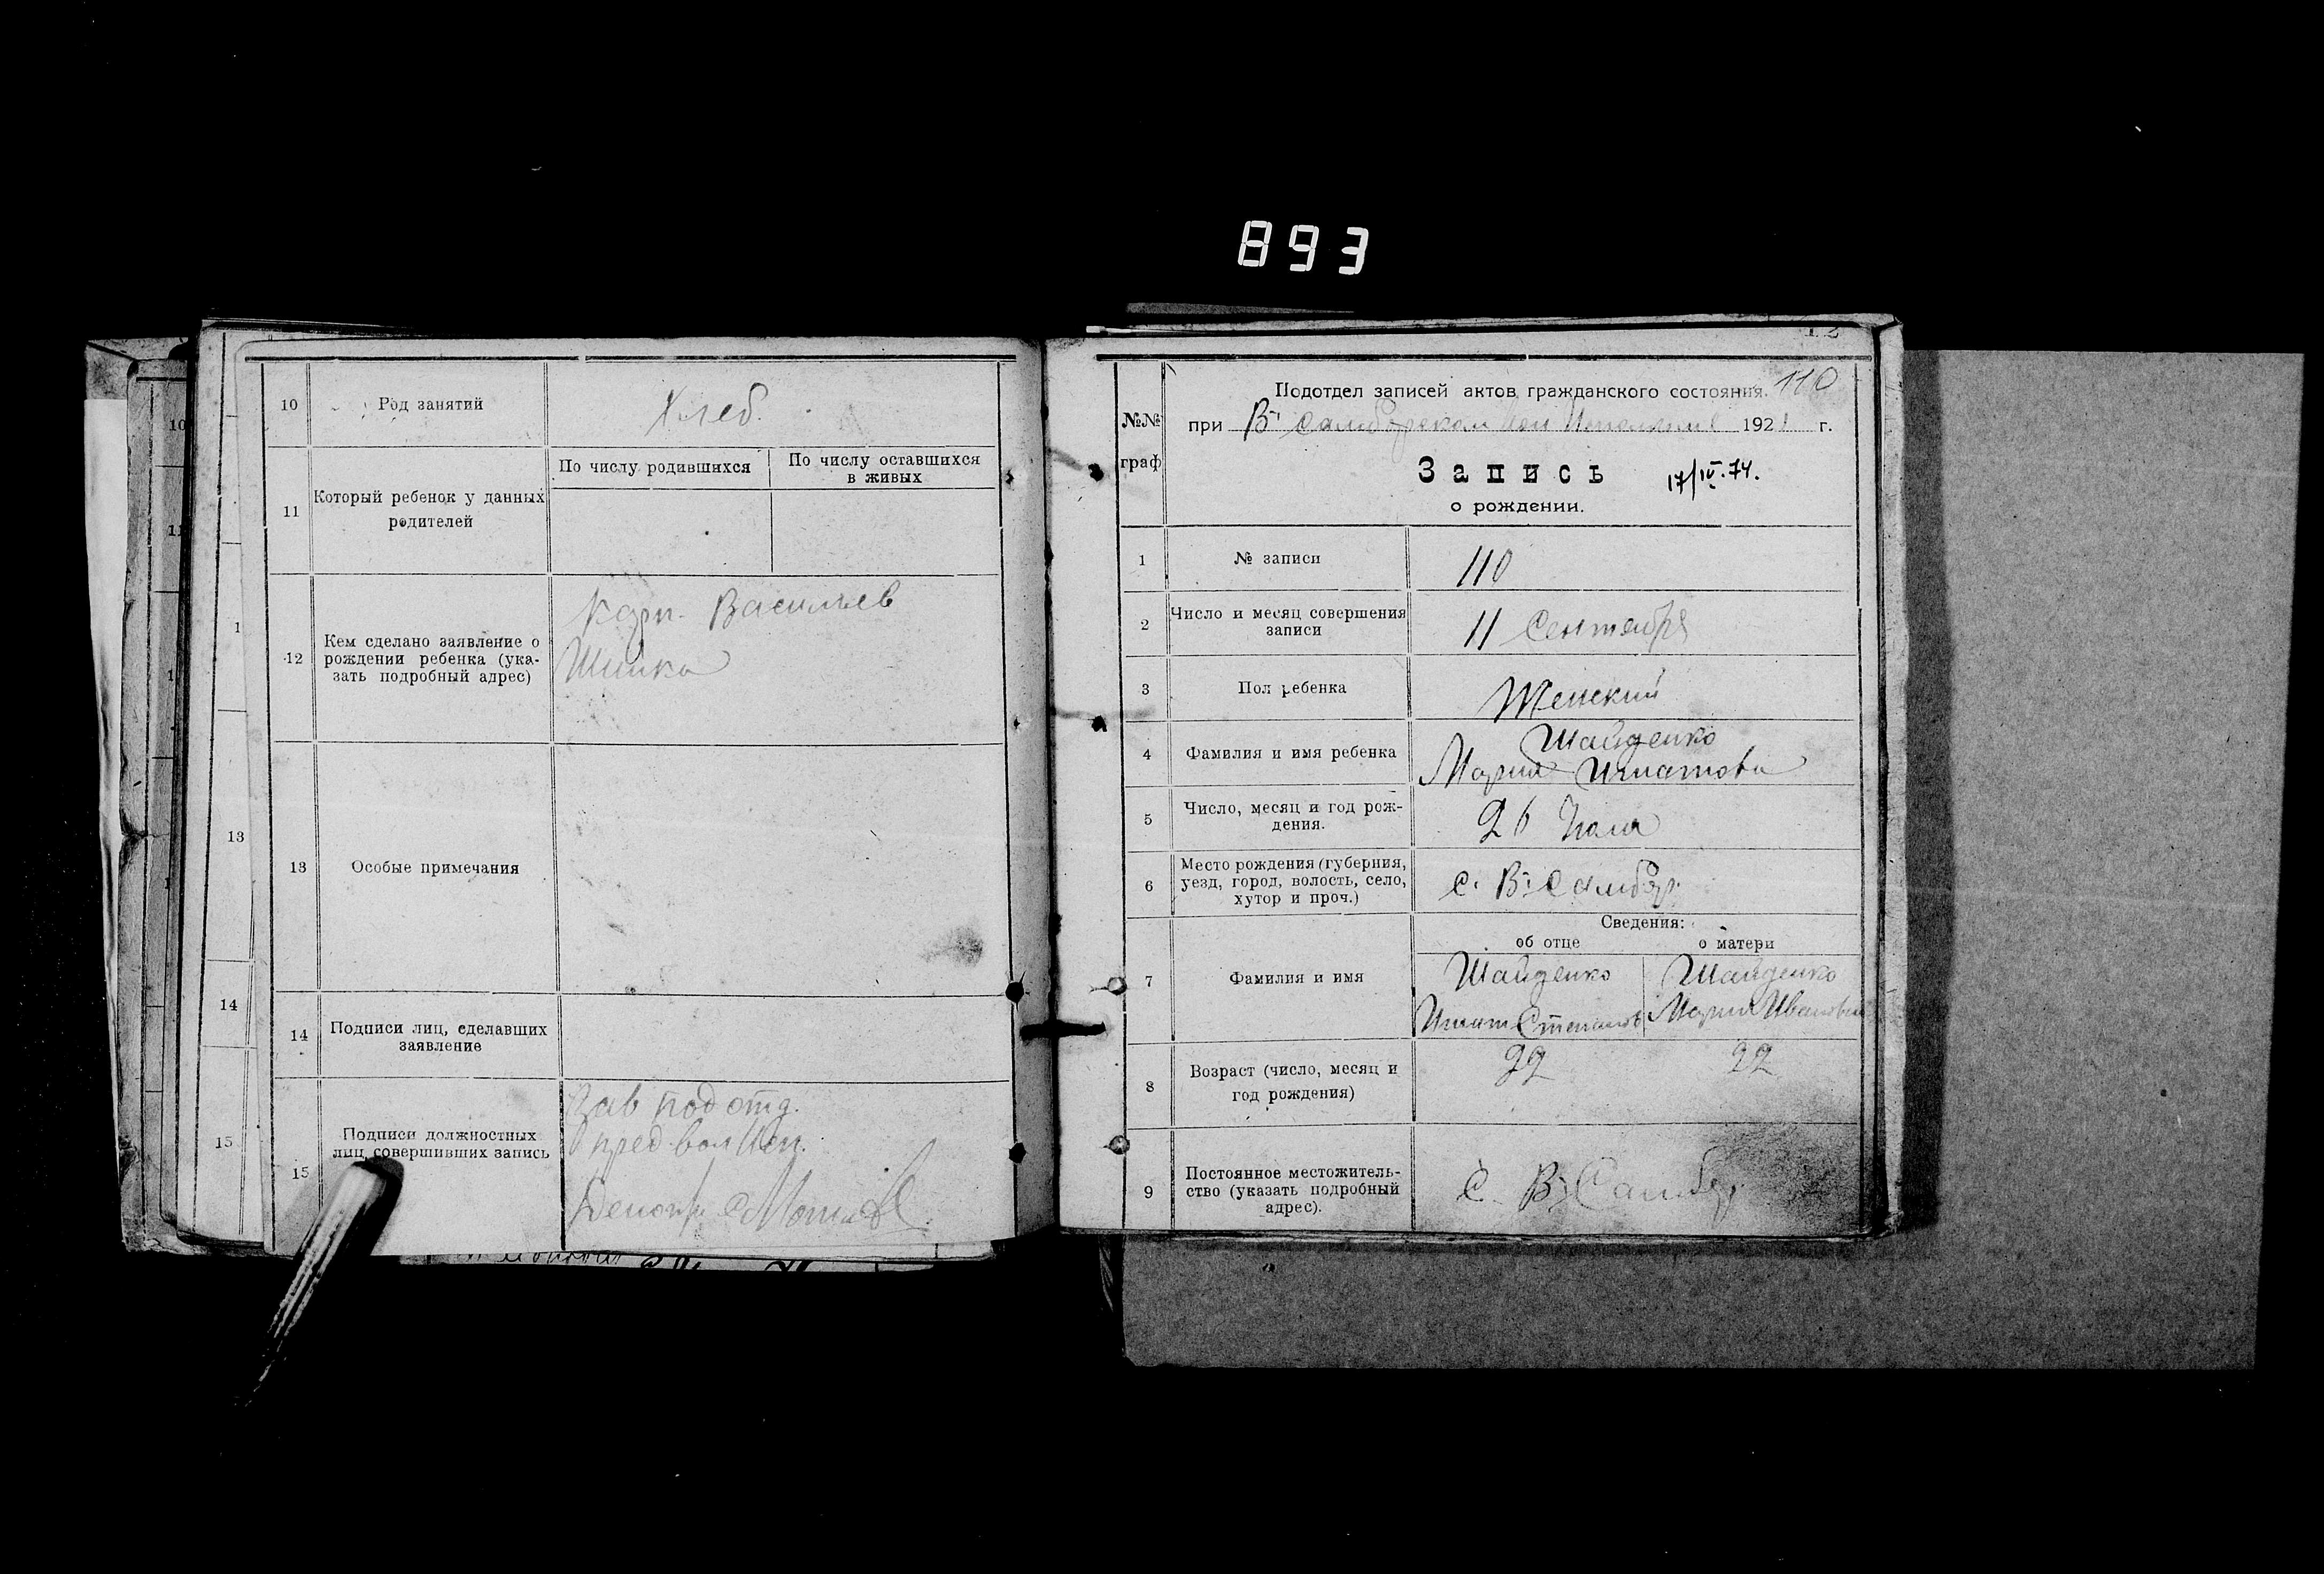 893
10
Род занятий
Хлеб.
11
Который ребенок у данных
родителей
По числу родившихся
По числу оставшихся
в живых
12
Кем сделано заявление о
рождении ребенка (ука-
зать подробный адрес)
Карп. Васильев
Шишка
13
Особые примечания
14
Подписи лиц, сделавших
заявление
15
Подписи должностных
лиц, совершивших запись
Зав подотд.
пред вол Исп.
10
11
1
13
14
15
110
№№
граф
Подотдел записей актов гражданского состояния.
при В: Самборском Вол Исполкоме 1921 г.
Запись
17/IV.74.
о рождении.
1
№ записи
110
2
Число и месяц совершения
записи
11 Сентября
3
Пол ребенка
Женский
4
Фамилия и имя ребенка
Шайденко
Мария Игнатова
5
Число, месяц и год рож-
дения.
26 Июля
6
Место рождения (губерния,
уезд, город, волость, село,
хутор и проч.)
с. В: Самбор.
Сведения:
об отце
о матери
7
Фамилия и имя
Шайденко
Игнат Степанов
Шайденко
Мария Иванова
8
Возраст (число, месяц и
год рождения)
22
22
9
Постоянное местожитель-
ство (указать подробный
адрес).
С. В: Самбор.